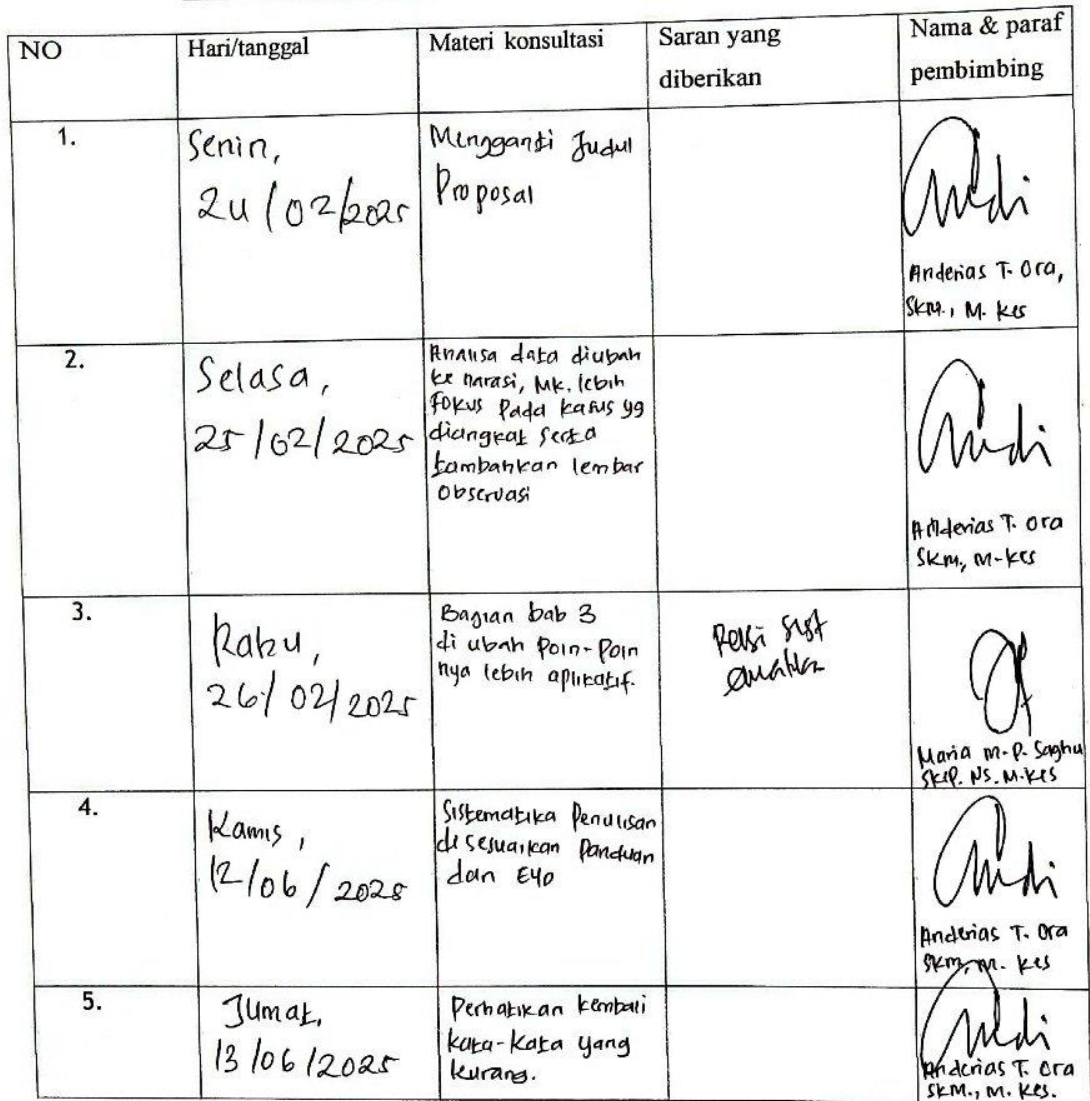 NO
Hari/tanggal
Materi konsultasi
Saran yang
diberikan
Nama & paraf
pembimbing
1.
Senin,
24/02/2025
Mengganti Judul
Proposal
Anderias T. Ora,
SKM., M. Kes
2.
Selasa,
25/02/2025
Analisa data diubah
ke narasi, MK. lebih
fokus pada kasus yg
diangkat serta
tambahkan lembar
Observasi
Anderias T. Ora
SKM., M-Kes
3.
Rabu,
26/02/2025
Bagian bab 3
di ubah Poin-Poin
nya lebih aplikatif.
Maria M-P. Saghu
SKeP. NS. M.Kes
4.
Kamis,
12/06/2025
Sistematika Penulisan
di sesuaikan Panduan
dan EYD
Anderias T. Ora
SKM, M. Kes
5.
Jumat,
13/06/2025
Perhatikan kembali
kata-kata yang
kurang.
Anderias T. Ora
SKM., M. Kes.